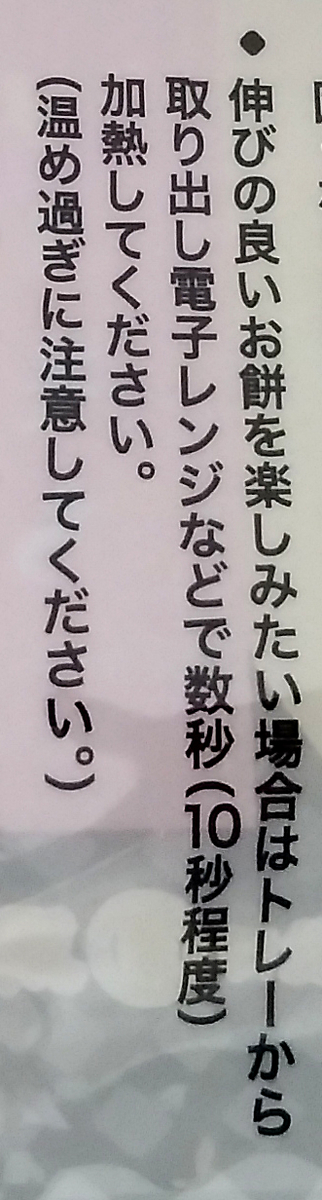 ● 伸びの良いお餅を楽しみたい場合はトレーから
取り出し電子レンジなどで数秒(10秒程度)
加熱してください。
(温め過ぎに注意してください。)